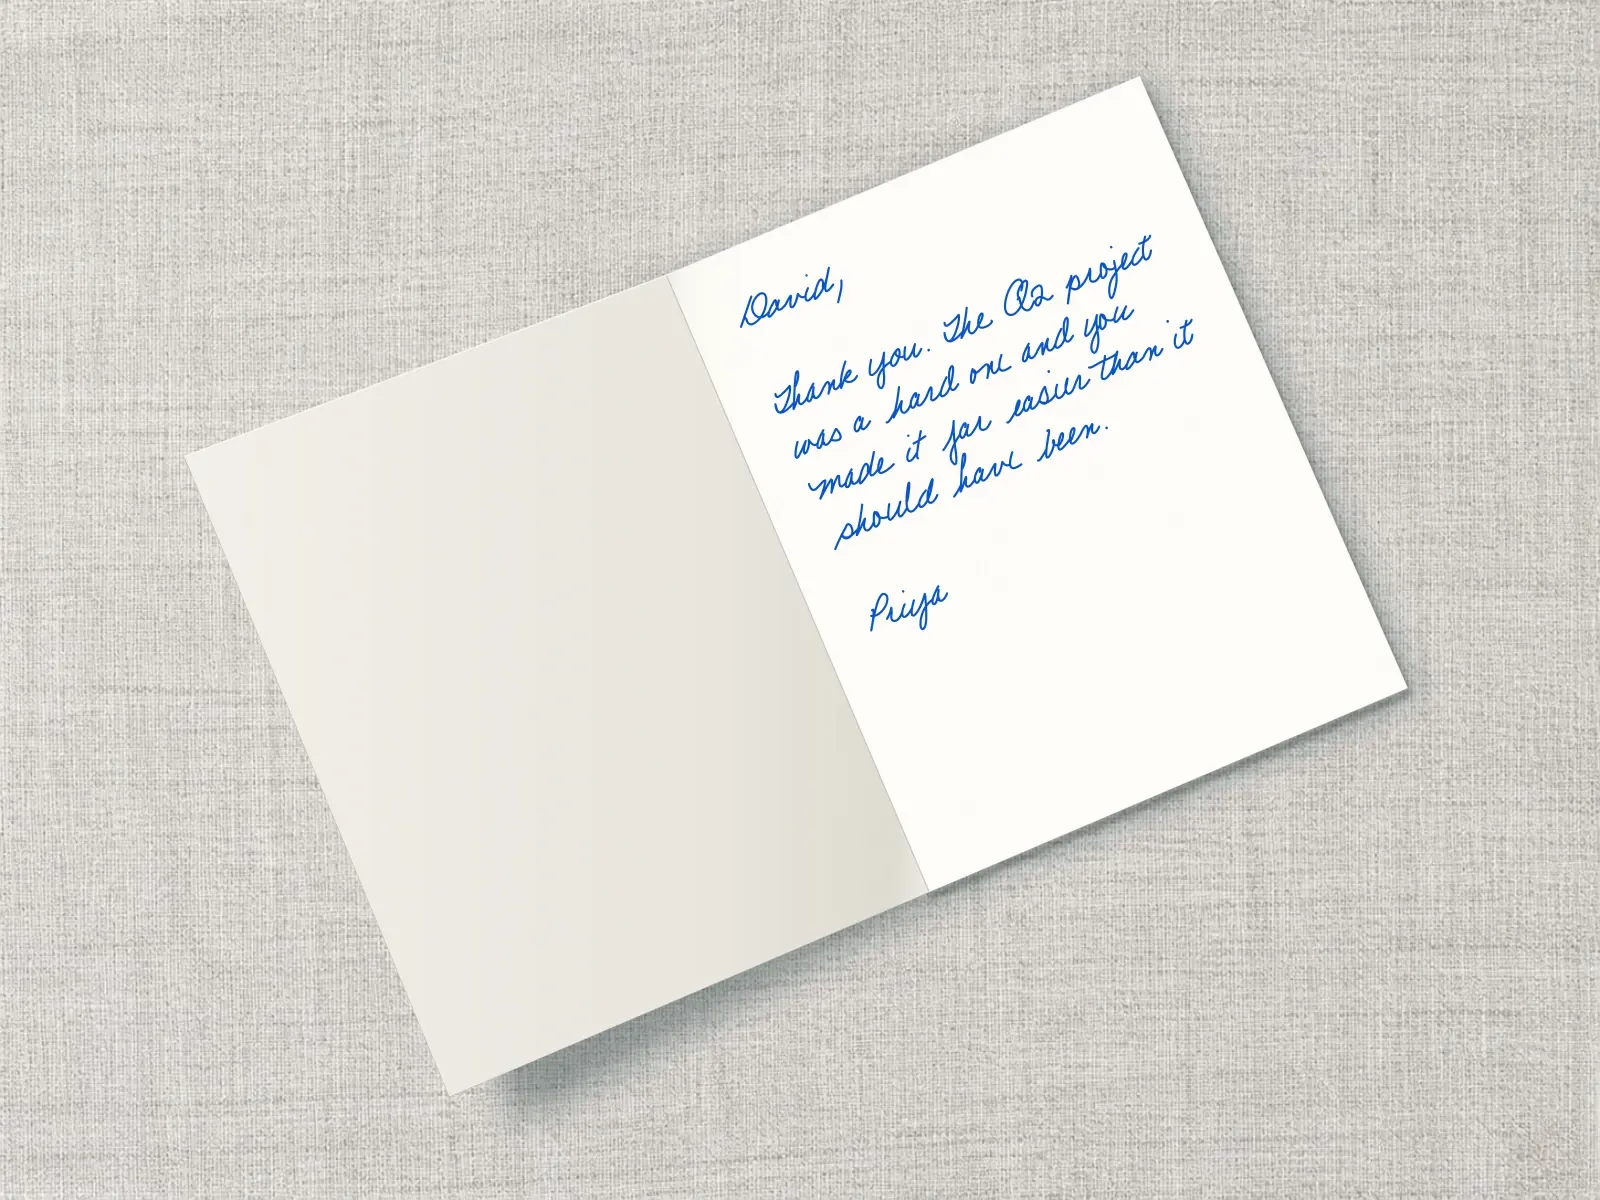 David,
Thank you. The Q2 project
was a hard one and you
made it far easier than it
should have been.
Priya